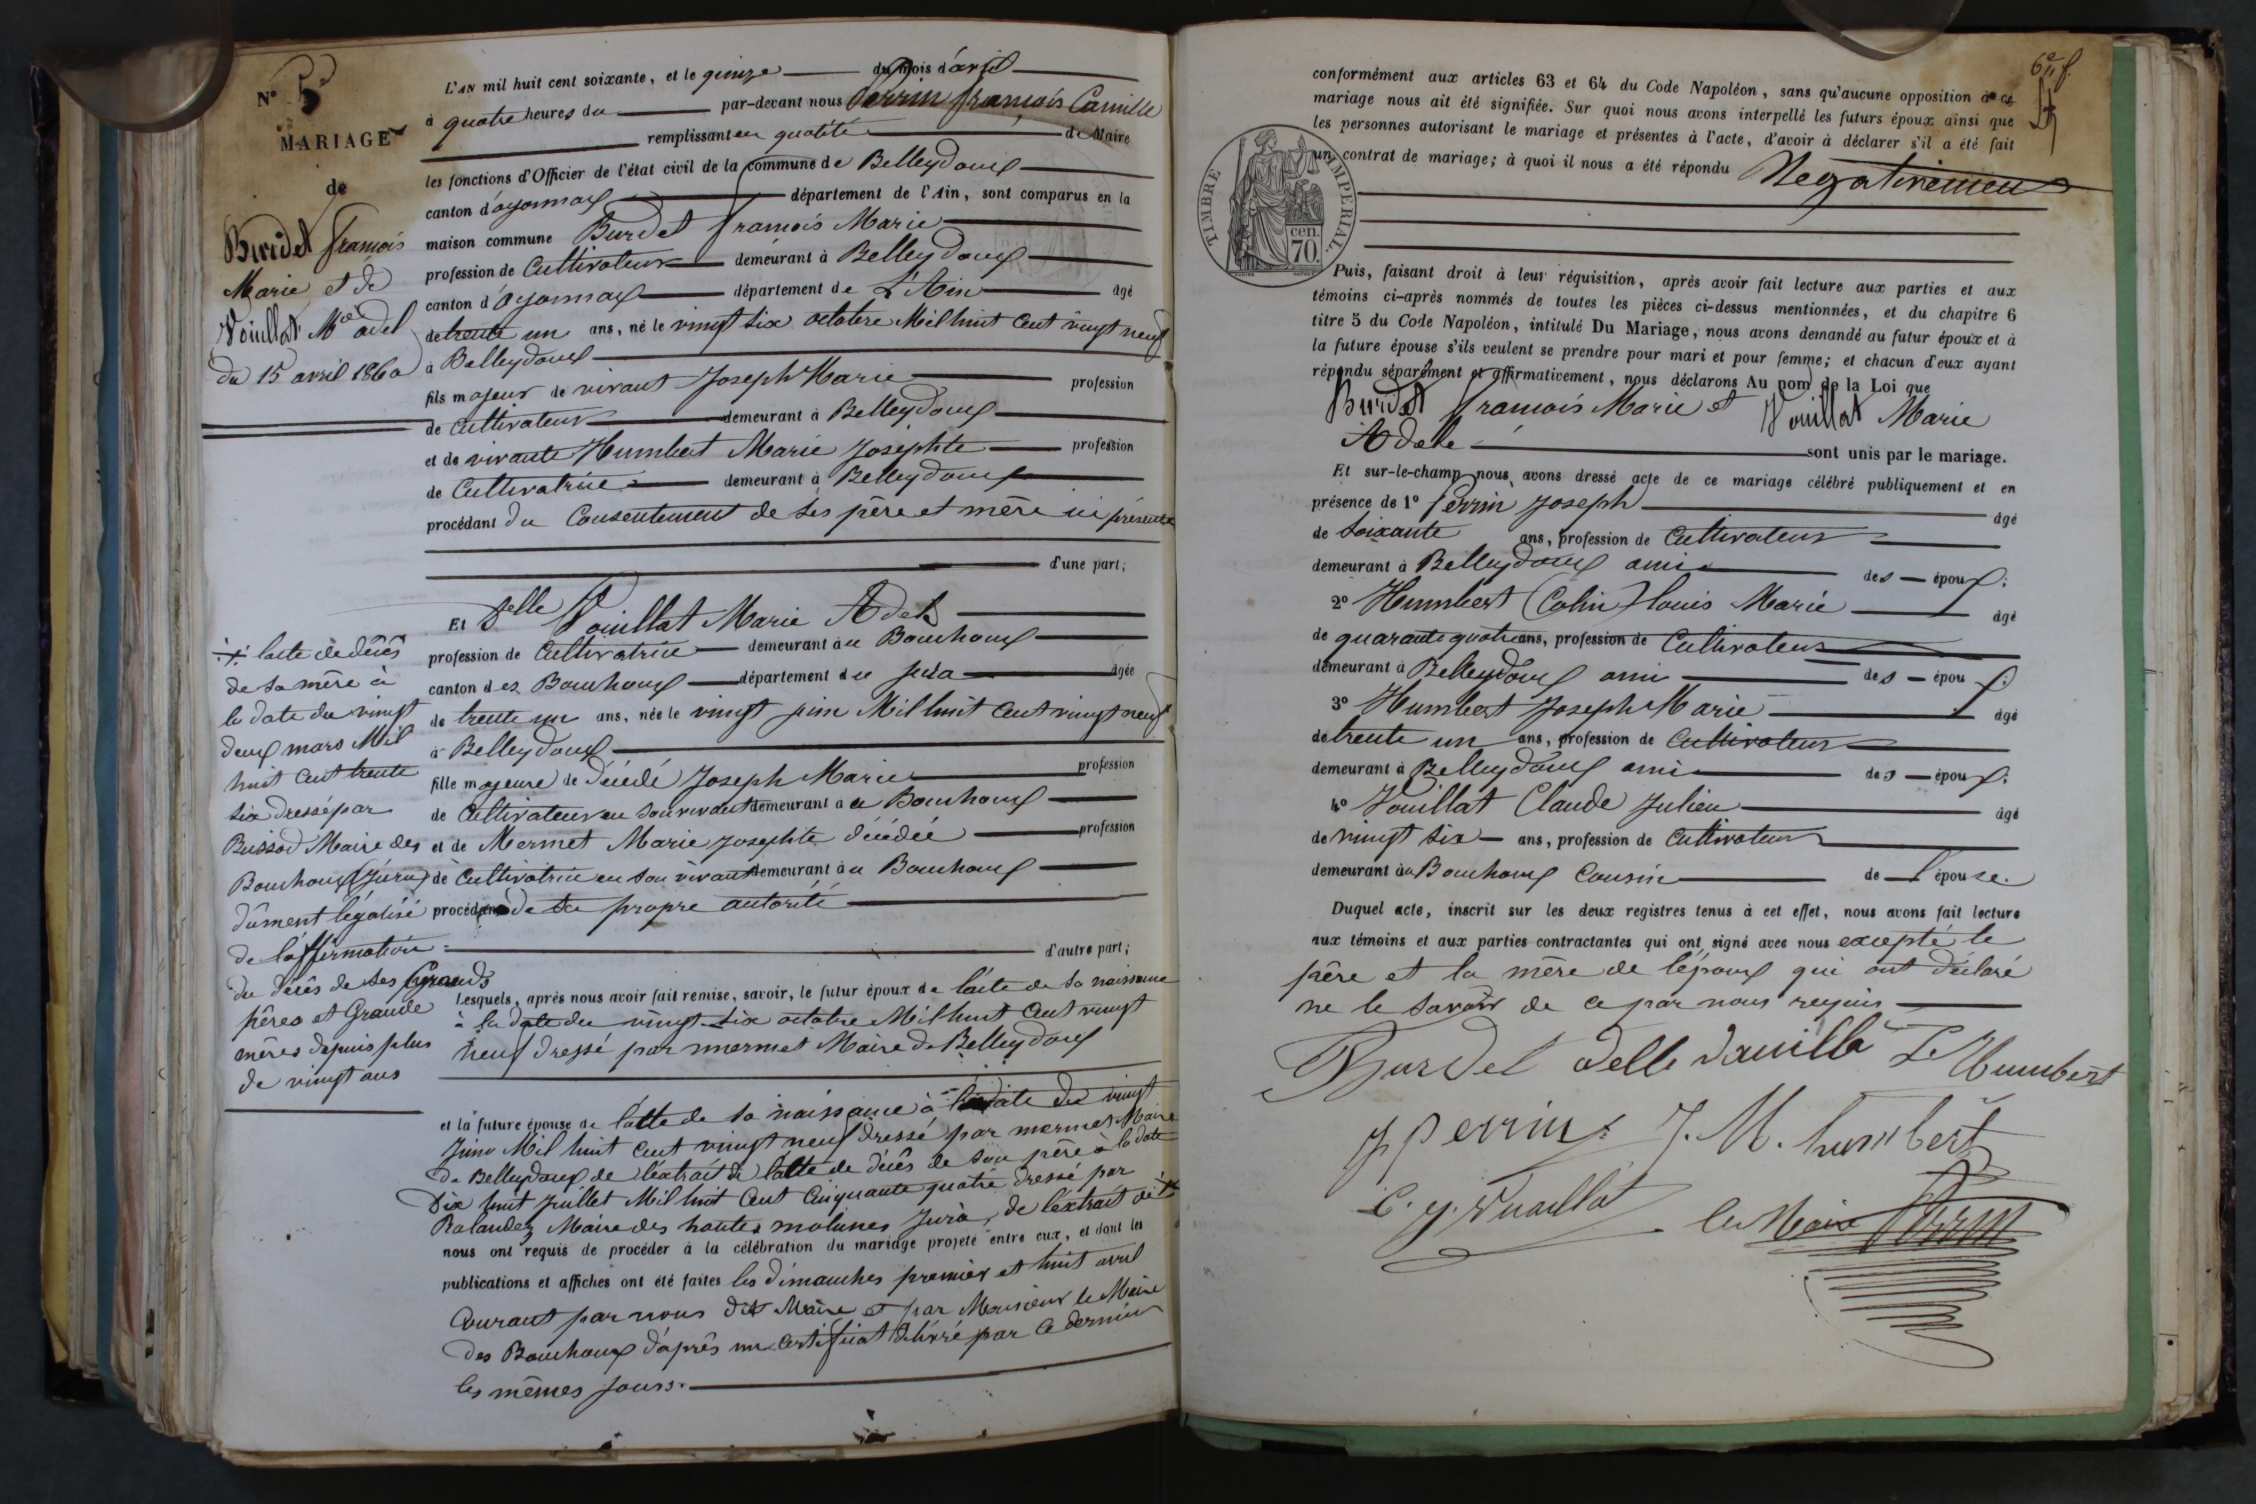 N° 5
MARIAGE
de
Burdet François
Marie et de
Vouillat Mie adel
du 15 avril 1860
L'AN mil huit cent soixante, et le quinze du mois d'avril
à quatre heures du par-devant nous Perrin François Camille
remplissant en qualité de Maire
les fonctions d'Officier de l'état civil de la commune de Belleydoux
canton d'oyonnax département de l'Ain, sont comparus en la
maison commune Burdet François Marie
profession de Cultivateur demeurant à Belleydoux
canton d'Oyonnax département de L'Ain âgé
de trente un ans, né le vingt six octobre Mil huit Cent vingt neuf
à Belleydoux
fils majeur de vivant Joseph Marie profession
de Cultivateur demeurant à Belleydoux
et de vivante Humbert Marie Josephte profession
de Cultivatrice demeurant à Belleydoux
procédant du Consentement de ses père et mère ici présents
d'une part;
Et Delle Vouillat Marie Adele
profession de Cultivatrice demeurant au Bouchoux
canton des Bouchoux département du Jura âgée
de trente un ans, née le vingt juin Mil huit Cent vingt neuf
à Belleydoux
fille majeure de Décédé Joseph Marie profession
de Cultivateur en son vivant demeurant au Bouchoux
et de Mermet Marie Josephte Décédée profession
de Cultivatrice en son vivant demeurant au Bouchoux
procédant de sa propre autorité
d'autre part;
Lesquels, après nous avoir fait remise, savoir, le futur époux de l'acte de sa naissance
à la date du vingt-six octobre Mil huit Cent vingt
neuf Dressé par mermet Maire de Belleydoux
et la future épouse de l'acte de sa naissance à la date du vingt
Juin Mil huit Cent vingt neuf dressé par mermet Maire
de Belleydoux de l'extrait de l'acte de décès de son père à la date
Dix huit Juillet Mil huit Cent Cinquante quatre dressé par
Maire des hautes molunes Jura, de l'extrait de
nous ont requis de procéder à la célébration du mariage projeté entre eux, et dont les
publications et affiches ont été faites les dimanches premier et huit avril
Courant par nous dit Maire et par Monsieur le Maire
des Bouchoux d'après un certificat Délivré par Ce dernier
les mêmes jours.
l'acte de décès
de sa mère à
la date du vingt
deux mars Mil
huit Cent trente
six dressé par
Buisson Maire des
Bouchoux (Jura)
dûment légalisé
de l'affirmation
du décès de ses Grands
pères et Grande
mères depuis plus
de vingt ans
6e f.
conformément aux articles 63 et 64 du Code Napoléon, sans qu'aucune opposition à ce
mariage nous ait été signifiée. Sur quoi nous avons interpellé les futurs époux ainsi que
les personnes autorisant le mariage et présentes à l'acte, d'avoir à déclarer s'il a été fait
un contrat de mariage; à quoi il nous a été répondu Negativement
TIMBRE IMPERIAL.
70 cen.
Puis, faisant droit à leur réquisition, après avoir fait lecture aux parties et aux
témoins ci-après nommés de toutes les pièces ci-dessus mentionnées, et du chapitre 6
titre 5 du Code Napoléon, intitulé Du Mariage, nous avons demandé au futur époux et à
la future épouse s'ils veulent se prendre pour mari et pour femme; et chacun d'eux ayant
répondu séparément et affirmativement, nous déclarons Au nom de la Loi que
Burdet François Marie et Vouillat Marie
Adele sont unis par le mariage.
Et sur-le-champ nous avons dressé acte de ce mariage célébré publiquement et en
présence de 1° Perrin Joseph âgé
de soixante ans, profession de Cultivateur
demeurant à Belleydoux ami des époux;
2° Humbert (Colin) louis Marie âgé
de quarante quatre ans, profession de Cultivateur
demeurant à Belleydoux ami des époux;
3° Humbert Joseph Marie âgé
de trente un ans, profession de Cultivateur
demeurant à Belleydoux ami des époux;
4° Vouillat Claude Julien âgé
de vingt six ans, profession de Cultivateur
demeurant au Bouchoux Cousin de l'épouse.
Duquel acte, inscrit sur les deux registres tenus à cet effet, nous avons fait lecture
aux témoins et aux parties contractantes qui ont signé avec nous excepté le
père et la mère de l'époux qui ont déclaré
ne le savoir de ce par nous requis
Burdet adelle Vouilla L Humbert
J Perrin J. M. humbert
C. J. Vuaillat le Maire Perrin